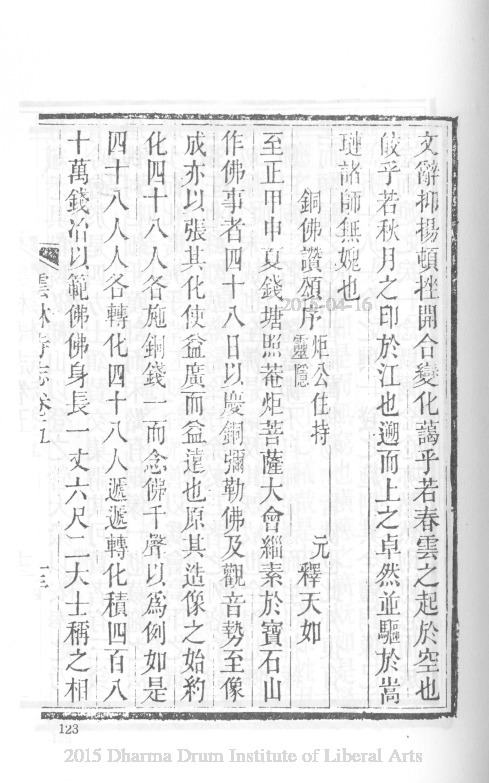 文辭抑揚頓挫開合變化藹乎若春雲之起於空也
皎乎若秋月之印於江也遡而上之卓然並驅於嵩
璉諸師無媿也
銅佛讚頌序 炬公住持靈隱 元釋天如
至正甲申夏錢塘照菴炬菩薩大會緇素於寶石山
作佛事者四十八日以慶銅彌勒佛及觀音勢至像
成亦以張其化使益廣而益遠也原其造像之始約
化四十八人各施銅錢一而念佛千聲以爲例如是
四十八人人各轉化四十八人遞遞轉化積四百八
十萬錢冶以範佛佛身長一丈六尺二大士稱之相
雲林寺志卷五
十三
123
2016-04-16
2015 Dharma Drum Institute of Liberal Arts